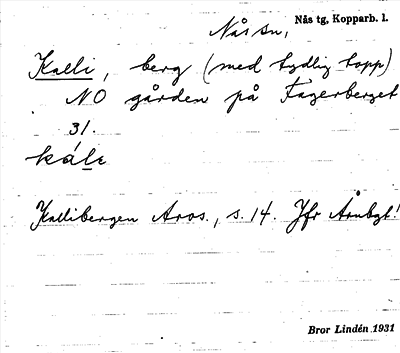 Nås sn,
Nås tg, Kopparb. l.
Kalli, berg (med tydlig topp)
NO gården på Fagerberget
31.
kálι
Kallibergen Aros., s. 14. Jfr Årnbgt!
Bror Lindén 1931